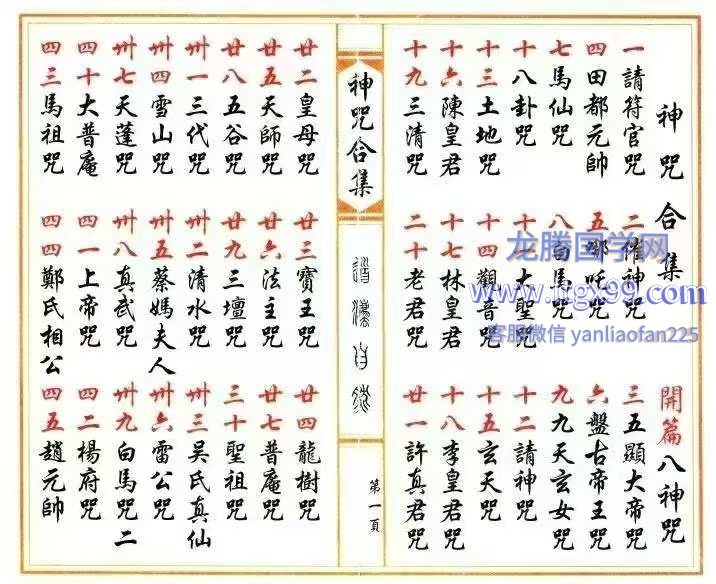 神咒合集 開篇八神咒
一請符官咒 二催神咒 三五顯大帝咒
四田都元帥 五哪吒咒 六盤古帝王咒
七馬仙咒 八白馬咒 九九天玄女咒
十八卦咒 十一大聖咒 十二請神咒
十三土地咒 十四觀音咒 十五玄天咒
十六陳皇君 十七林皇君 十八李皇君咒
十九三清咒 二十老君咒 廿一許真君咒
神咒合集
道灋自然
第一頁
廿二皇母咒 廿三寶王咒 廿四龍樹咒
廿五天師咒 廿六法主咒 廿七普庵咒
廿八五谷咒 廿九三壇咒 三十聖祖咒
卅一三代咒 卅二清水咒 卅三吳氏真仙
卅四雪山咒 卅五蔡媽夫人 卅六雷公咒
卅七天蓬咒 卅八真武咒 卅九白馬咒二
四十大普庵 四一上帝咒 四二楊府咒
四三馬祖咒 四四鄭氏相公 四五趙元帥
龙腾国学网
www.ltgx99.com
客服微信 yanliaofan225